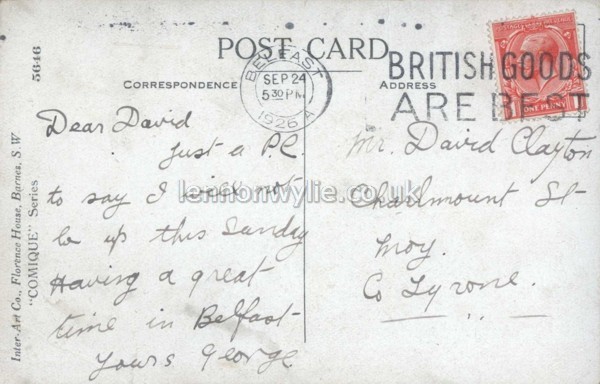 POST CARD
CORRESPONDENCE
ADDRESS
BELFAST
SEP 24
5 30 PM
1926 A
BRITISH GOODS
ARE BEST
ONE PENNY
Dear David
Just a P.C.
to say I will not
be up this Sunday
Having a great
time in Belfast
Yours George
Mr. David Clayton
Charlmount St
Moy.
Co Tyrone.
Inter-Art Co., Florence House, Barnes, S.W
"COMIQUE" Series
5646
lennonwylie.co.uk